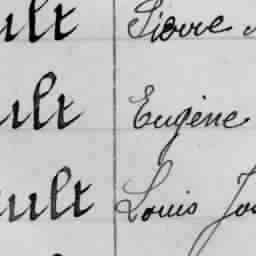 ult Pierre
ult Eugène
ult Louis